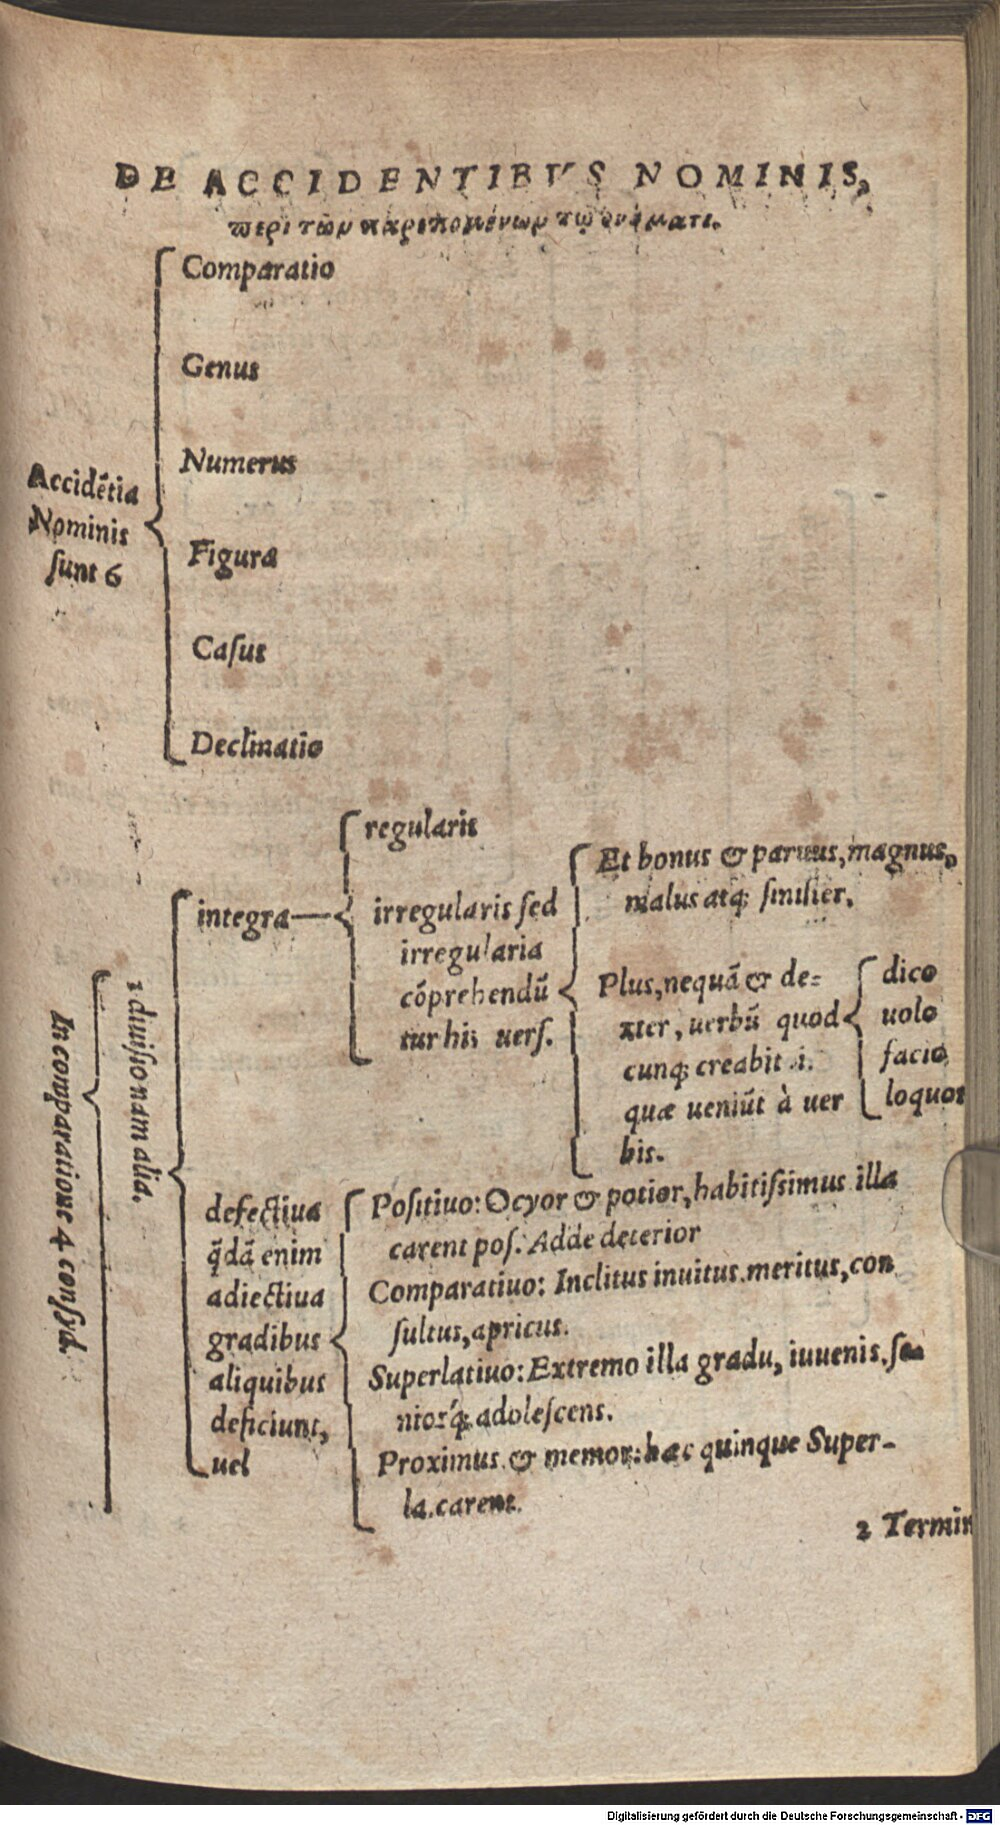 DE ACCIDENTIBVS NOMINIS,
περὶ τῶν παρεπομένων τῷ ὀνόματι.
Accidẽtia
Nominis
ſunt 6
Comparatio
Genus
Numerus
Figura
Caſus
Declinatio
In comparatione 4 conſyd.
1 diuiſio nam alia.
integra
regularis
irregularis ſed
irregularia
cõprehendũ
tur his uerſ.
Et bonus & paruus, magnus,
malus atq; ſiniſter.
Plus, nequã & de-
xter, uerbũ quod
cunq; creabit .i.
quæ ueniũt à uer
bis.
dico
uolo
facio
loquor
defectiua
q̃dã enim
adiectiua
gradibus
aliquibus
deficiunt,
uel
Poſitiuo: Ocyor & potior, habitiſsimus illa
carent poſ. Adde deterior
Comparatiuo: Inclitus inuitus. meritus, con
ſultus, apricus.
Superlatiuo: Extremo illa gradu, iuuenis. ſe
niorq́; adoleſcens.
Proximus & memor: hæc quinque Super-
la. carent.
2 Termin
Digitalisierung gefördert durch die Deutsche Forschungsgemeinschaft - DFG